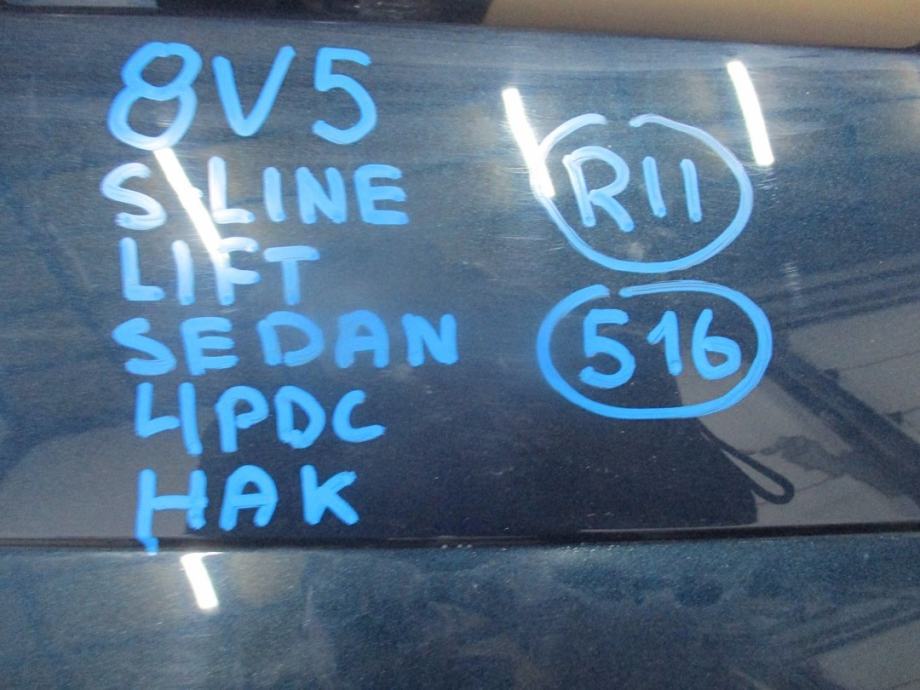 8V5
S-LINE
LIFT
SEDAN
4PDC
HAK
R11
516